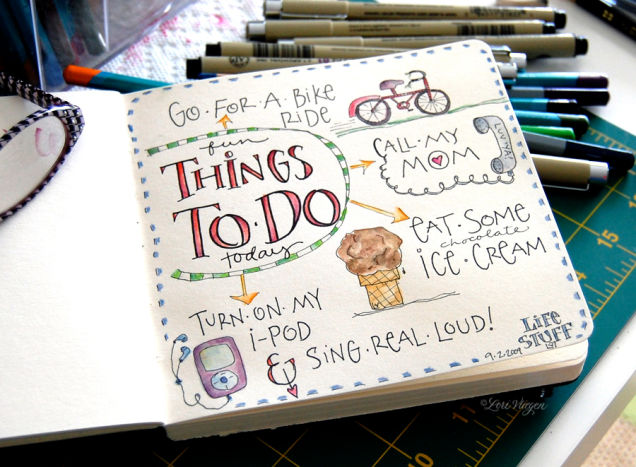 GO·FOR·A·BIKE
RIDE
fun
THINGS
TO·DO
today
CALL·MY
MOM
EAT·SOME
chocolate
ICE·CREAM
TURN·ON·MY
i-POD
& SING·REAL·LOUD!
LiFE
STUFF
9·2·2009
©Lori Vliegen
15